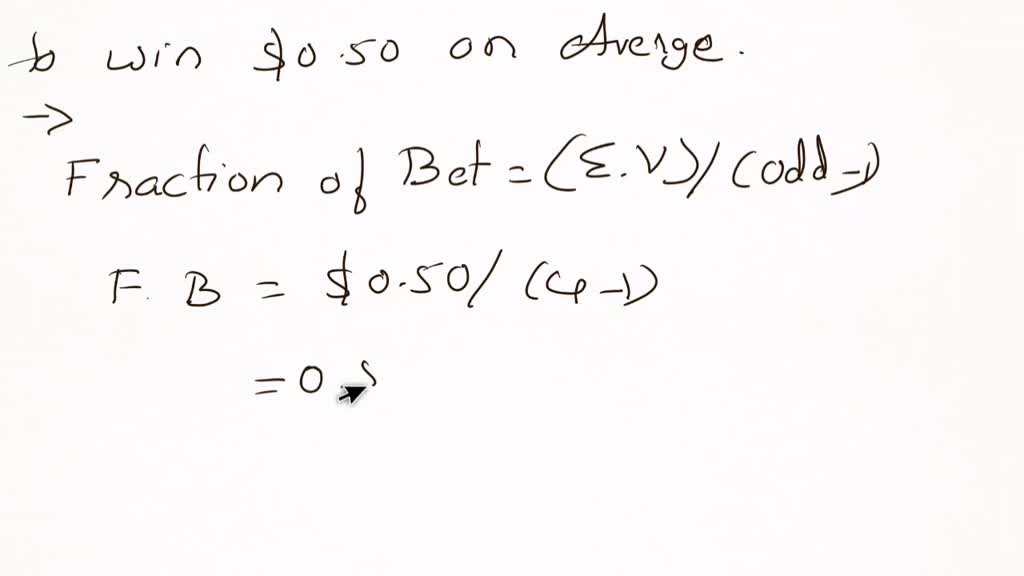 to win $0.50 on Averge.
→
Fraction of Bet = (E.V)/(odd-1)
F. B = $0.50/(4-1)
= 0.5